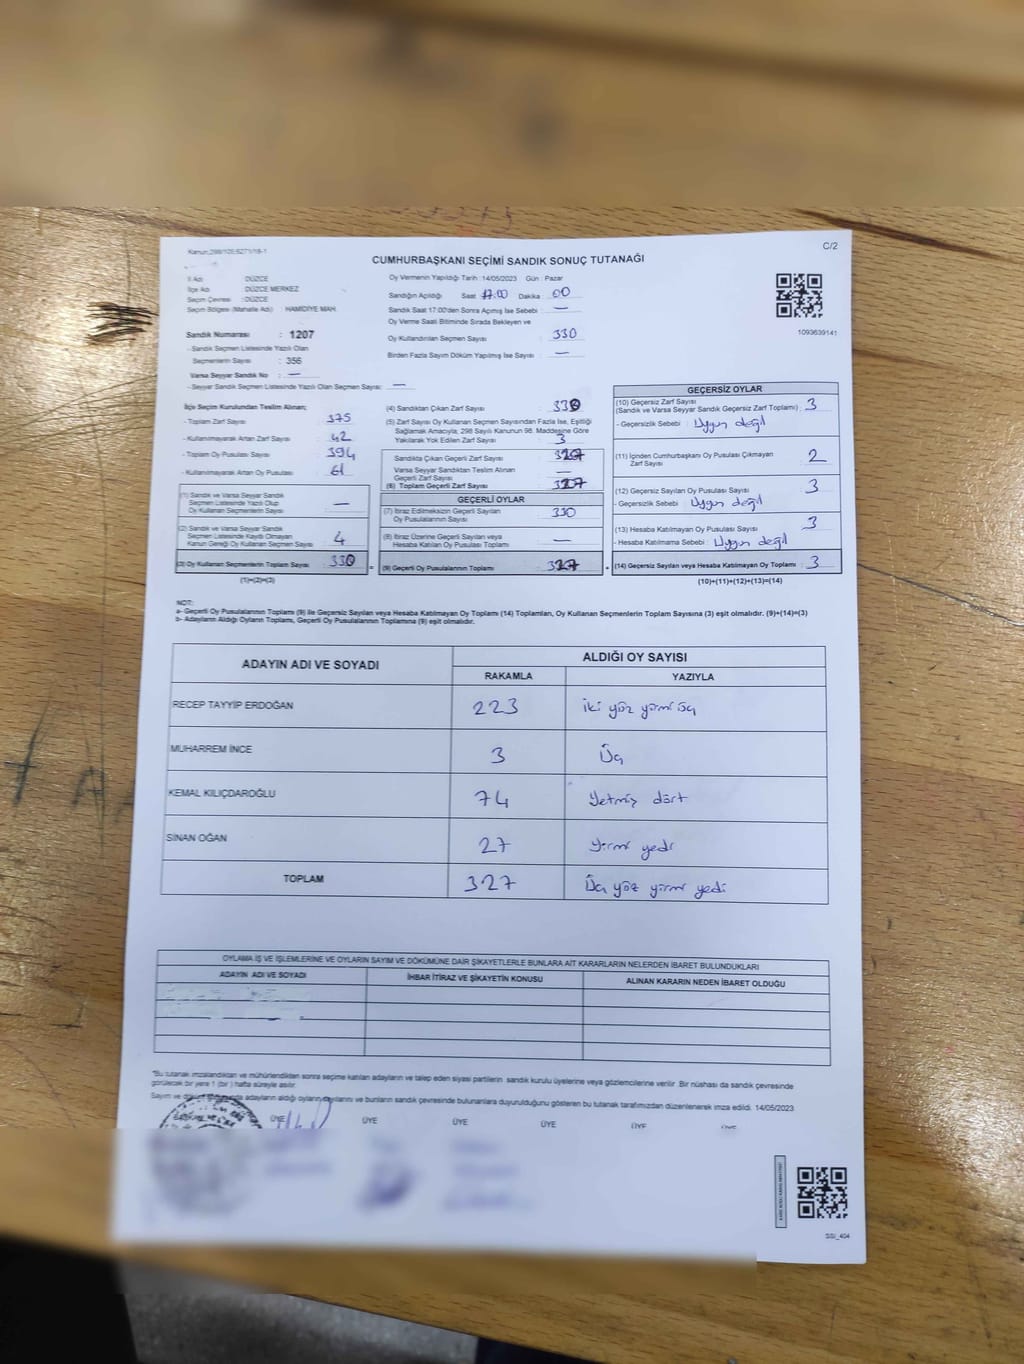 Kanun:298/105:6271/18-1
C/2
CUMHURBAŞKANI SEÇİMİ SANDIK SONUÇ TUTANAĞI
İl Adı : DÜZCE
İlçe Adı : DÜZCE MERKEZ
Seçim Çevresi : DÜZCE
Seçim Bölgesi (Mahalle Adı) : HAMİDİYE MAH.
Sandık Numarası : 1207
- Sandık Seçmen Listesinde Yazılı Olan
Seçmenlerin Sayısı : 356
Varsa Seyyar Sandık No : —
- Seyyar Sandık Seçmen Listesinde Yazılı Olan Seçmen Sayısı: —
Oy Vermenin Yapıldığı Tarih : 14/05/2023 Gün : Pazar
Sandığın Açıldığı Saat : 17:00 Dakika : 00
Sandık Saat 17:00'den Sonra Açımış İse Sebebi : —
Oy Verme Saati Bitiminde Sırada Bekleyen ve
Oy Kullandırılan Seçmen Sayısı : 330
Birden Fazla Sayım Döküm Yapılmış İse Sayısı : —
1093639141
İlçe Seçim Kurulundan Teslim Alınan;
- Toplam Zarf Sayısı : 375
- Kullanılmayarak Artan Zarf Sayısı : 42
- Toplam Oy Pusulası Sayısı : 394
- Kullanılmayarak Artan Oy Pusulası : 61
(1) Sandık ve Varsa Seyyar Sandık
Seçmen Listesinde Yazılı Olup
Oy Kullanan Seçmen Sayısı : —
(2) Sandık ve Varsa Seyyar Sandık
Seçmen Listesinde Kayıtlı Olmayan
Kanun Gereği Oy Kullanan Seçmen Sayısı : 4
(3) Oy Kullanan Seçmenlerin Toplam Sayısı : 330
(1)+(2)=(3)
(4) Sandıktan Çıkan Zarf Sayısı : 330
(5) Zarf Sayısı Oy Kullanan Seçmen Sayısından Fazla İse, Eşitliği
Sağlamak Amacıyla, 298 Sayılı Kanunun 98. Maddesine Göre
Yakılarak Yok Edilen Zarf Sayısı : 3
Sandıkta Çıkan Geçerli Zarf Sayısı : 327
Varsa Seyyar Sandıktan Teslim Alınan
Geçerli Zarf Sayısı : —
(6) Toplam Geçerli Zarf Sayısı : 327
GEÇERLİ OYLAR
(7) İtiraz Edilmeksizin Geçerli Sayılan
Oy Pusulalarının Sayısı : 330
(8) İtiraz Üzerine Geçerli Sayılan veya
Hesaba Katılan Oy Pusulası Toplamı : —
(9) Geçerli Oy Pusulalarının Toplamı : 327
GEÇERSİZ OYLAR
(10) Geçersiz Zarf Sayısı
(Sandık ve Varsa Seyyar Sandık Geçersiz Zarf Toplamı) : 3
- Geçersizlik Sebebi : Uygun değil
(11) İçinden Cumhurbaşkanı Oy Pusulası Çıkmayan
Zarf Sayısı : 2
(12) Geçersiz Sayılan Oy Pusulası Sayısı : 3
- Geçersizlik Sebebi : Uygun değil
(13) Hesaba Katılmayan Oy Pusulası Sayısı : 3
- Hesaba Katılmama Sebebi : Uygun değil
(14) Geçersiz Sayılan veya Hesaba Katılmayan Oy Toplamı : 3
(10)+(11)+(12)+(13)=(14)
NOT:
a- Geçerli Oy Pusulalarının Toplamı (9) ile Geçersiz Sayılan veya Hesaba Katılmayan Oy Toplamı (14) Toplamları, Oy Kullanan Seçmenlerin Toplam Sayısına (3) eşit olmalıdır. (9)+(14)=(3)
b- Adayların Aldığı Oyların Toplamı, Geçerli Oy Pusulalarının Toplamına (9) eşit olmalıdır.
ADAYIN ADI VE SOYADI
ALDIĞI OY SAYISI
RAKAMLA YAZIYLA
RECEP TAYYİP ERDOĞAN 223 iki yüz yirmi üç
MUHARREM İNCE 3 Üç
KEMAL KILIÇDAROĞLU 74 Yetmiş dört
SİNAN OĞAN 27 yirmi yedi
TOPLAM 327 Üç yüz yirmi yedi
OYLAMA İŞ VE İŞLEMLERİNE VE OYLARIN SAYIM VE DÖKÜMÜNE DAİR ŞİKAYETLERLE BUNLARA AİT KARARLARIN NELERDEN İBARET BULUNDUKLARI
ADAYIN ADI VE SOYADI İHBAR İTİRAZ VE ŞİKAYETİN KONUSU ALINAN KARARIN NEDEN İBARET OLDUĞU
"Bu tutanak imzalandıktan ve mühürlendikten sonra seçime katılan adayların ve talep eden siyasi partilerin sandık kurulu üyelerine veya gözlemcilerine verilir. Bir nüshası da sandık çevresinde
görülecek bir yere 1 (bir) hafta süreyle asılır.
Sayım ve döküm sonunda adayların aldığı oyların sayılarını ve bunların sandık çevresinde bulunanlara duyurulduğunu gösteren bu tutanak tarafımızdan düzenlenerek imza edildi. 14/05/2023
ÜYE ÜYE ÜYE ÜYE ÜYE ÜYE
SSI_404